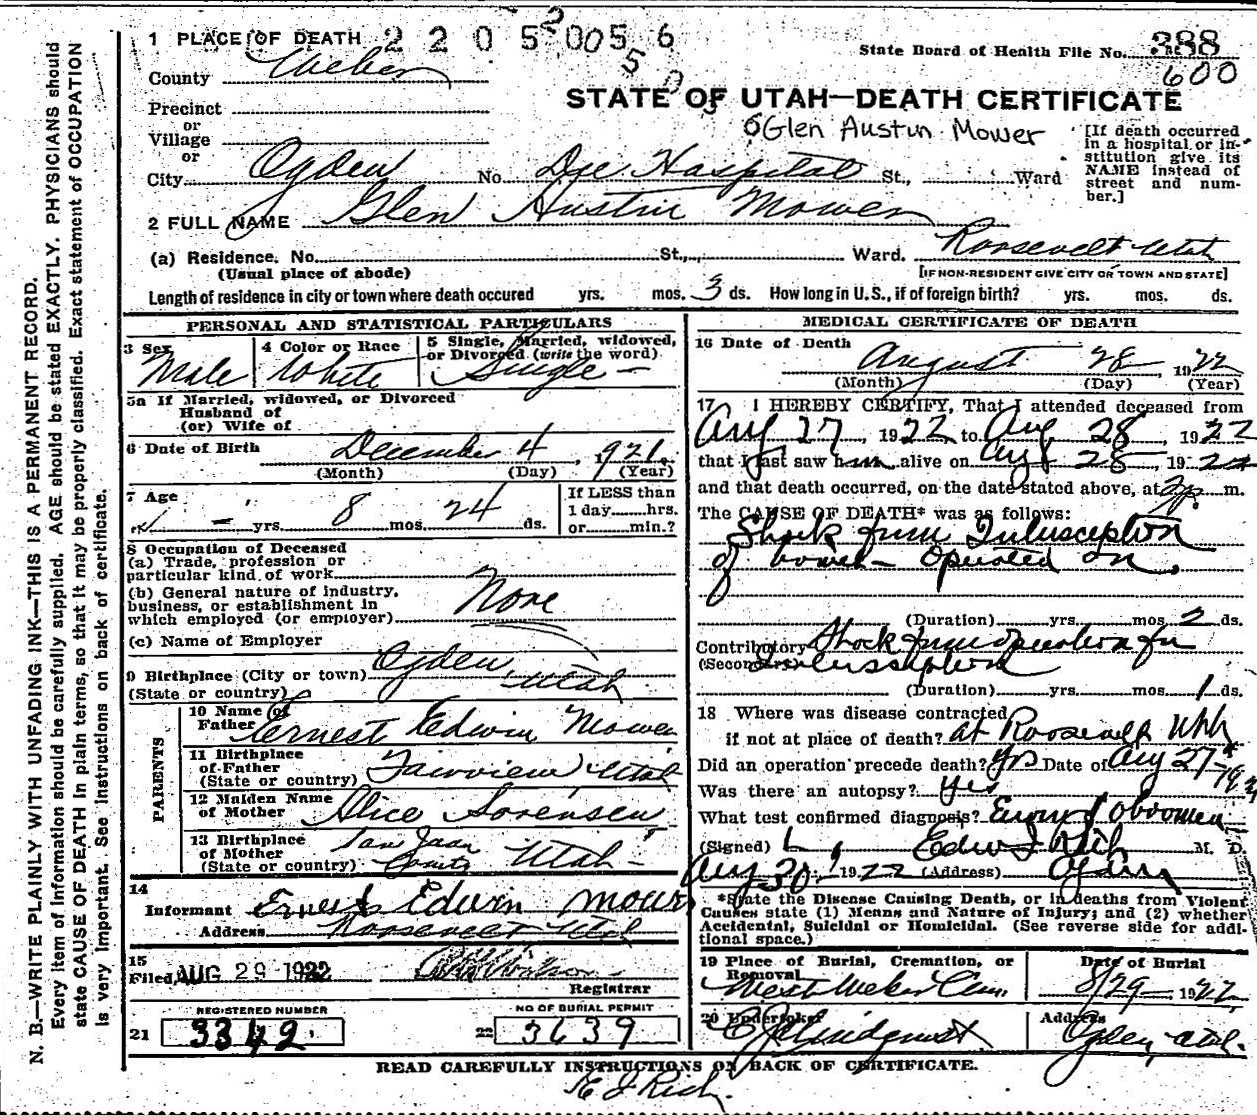 1 PLACE OF DEATH 2 2 0 5 2 0 0 5 6
5 0
State Board of Health File No. 388
600
County Weber
STATE OF UTAH—DEATH CERTIFICATE
Precinct
or
Village
or
Glen Austin Mower
[If death occurred in a hospital or institution give its NAME instead of street and number.]
City Ogden No. Dee Hospital St., Ward
2 FULL NAME Glen Austin Mower
Roosevelt Utah
(a) Residence. No. St., Ward.
(Usual place of abode) [IF NON-RESIDENT GIVE CITY OR TOWN AND STATE]
Length of residence in city or town where death occured yrs. mos. 3 ds. How long in U.S., if of foreign birth? yrs. mos. ds.
PERSONAL AND STATISTICAL PARTICULARS
3 Sex 4 Color or Race 5 Single, Married, widowed, or Divorced (write the word)
Male White Single -
5a If Married, widowed, or Divorced
Husband of
(or) Wife of
6 Date of Birth December 4, 1921.
(Month) (Day) (Year)
7 Age If LESS than
- yrs. 8 mos. 24 ds. 1 day hrs.
or min.?
8 Occupation of Deceased
(a) Trade, profession or
particular kind of work
(b) General nature of industry,
business, or establishment in
which employed (or employer) None
(c) Name of Employer
9 Birthplace (City or town) Ogden
(State or country) Utah
PARENTS
10 Name of
Father Ernest Edwin Mower
11 Birthplace
of Father
(State or country) Fairview Utah
12 Maiden Name
of Mother Alice Sorensen
13 Birthplace
of Mother San Juan
(State or country) County Utah -
14
Informant Ernest Edwin Mower
Address Roosevelt Utah
15
Filed AUG 29 1922
Registrar
REGISTERED NUMBER NO OF BURIAL PERMIT
21 3342 22 3639
MEDICAL CERTIFICATE OF DEATH
16 Date of Death
August 28, 1922
(Month) (Day) (Year)
17 I HEREBY CERTIFY, That I attended deceased from
Aug 27, 1922 to Aug 28, 1922
that I last saw him alive on Aug 28, 1922
and that death occurred, on the date stated above, at 2p. m.
The CAUSE OF DEATH* was as follows:
Shock from Intusception
of bowel - Operated on.
(Duration) yrs. mos. 2 ds.
Contributory Shock from operation for
(Secondary) Intussception
(Duration) yrs. mos. 1 ds.
18 Where was disease contracted
if not at place of death? at Roosevelt Utah
Did an operation precede death? Yes Date of Aug 27th 1922
Was there an autopsy? Yes
What test confirmed diagnosis?
(Signed) Edw I Rich M. D.
Aug 30, 1922 (Address) Ogden
*State the Disease Causing Death, or in deaths from Violent
Causes state (1) Means and Nature of Injury; and (2) whether
Accidental, Suicidal or Homicidal. (See reverse side for additional space.)
19 Place of Burial, Cremation, or Removal Date of Burial
West Weber Cem. 8/29 1922
20 Undertaker Address
Ogden, Utah.
READ CAREFULLY INSTRUCTIONS ON BACK OF CERTIFICATE.
E I Rich.
N. B.—WRITE PLAINLY WITH UNFADING INK—THIS IS A PERMANENT RECORD.
Every item of information should be carefully supplied. AGE should be stated EXACTLY. PHYSICIANS should
state CAUSE OF DEATH in plain terms, so that it may be properly classified. Exact statement of OCCUPATION
is very important. See instructions on back of certificate.